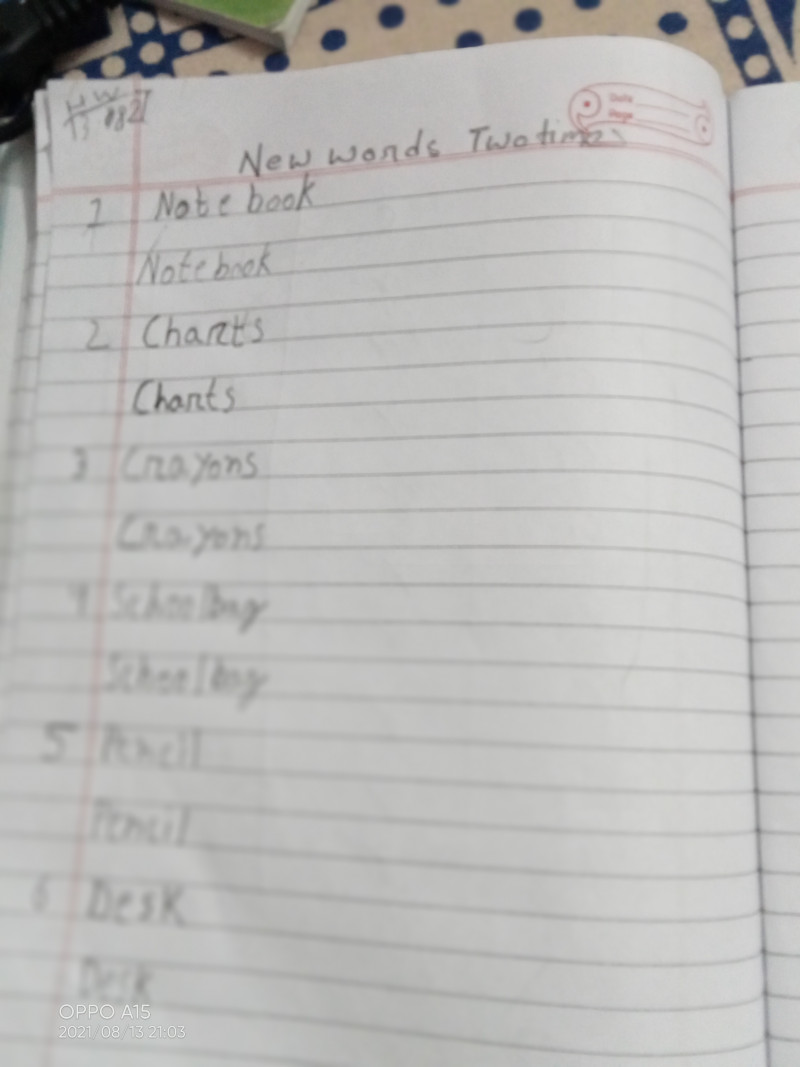 HW
13 08 21
Date
Page
New words Two times
1 Notebook
Notebook
2 Charts
Charts
3 Crayons
Crayons
4 Schoolbag
Schoolbag
5 Pencil
Pencil
6 Desk
Desk
OPPO A15
2021/08/13 21:03